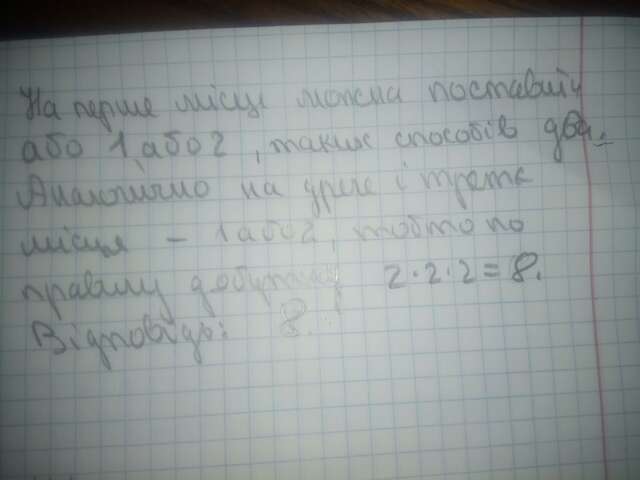 На перше місце можна поставити
або 1, або 2, таких способів два.
Аналогічно на друге і третє
місця - 1 або 2, тобто по
правилу добутку 2·2·2=8.
Відповідь: 8.